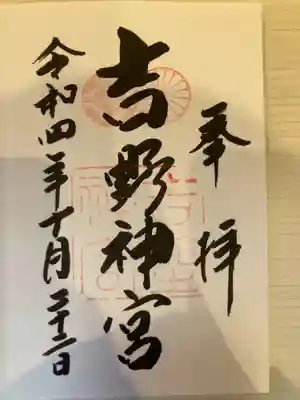 奉拝
吉野神宮
令和四年十月二十二日